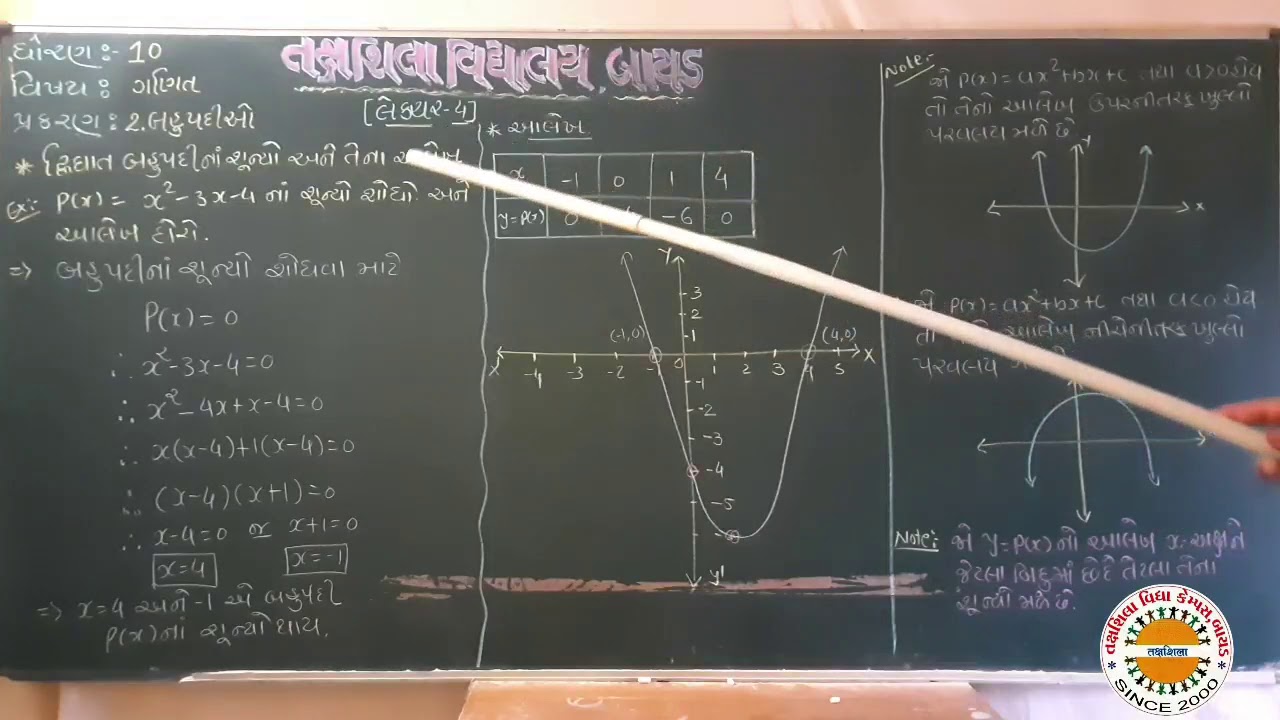 ધોરણ :- 10
વિષય : ગણિત
પ્રકરણ : 2. બહુપદીઓ
તક્ષશિલા વિદ્યાલય, બાયડ
[લેક્ચર-4]
* દ્વિઘાત બહુપદીનાં શૂન્યો અને તેના
Ex:- P(x) = x²-3x-4 નાં શૂન્યો શોધો. અને
આલેખ દોરો.
=> બહુપદીનાં શૂન્યો શોધવા માટે
P(x) = 0
∴ x²-3x-4=0
∴ x²-4x+x-4=0
∴ x(x-4)+1(x-4)=0
∴ (x-4)(x+1)=0
∴ x-4=0 or x+1=0
x=4 x=-1
=> x=4 અને -1 એ બહુપદી
P(x)નાં શૂન્યો થાય.
* આલેખ.
x -1 0 1 4
y=P(x) 0 -6 0
Y
3
2
1
(-1,0) (4,0)
X -4 -3 -2 -1 0 1 2 3 4 5 X
-1
-2
-3
-4
-5
y'
Note:-
જો P(x) = ax²+bx+c તથા a>0 હોય
તો તેનો આલેખ ઉપરનીતરફ ખુલ્લો
પરવલય મળે છે.
Y
X
જો P(x)=ax²+bx+c તથા a<0 હોય
તો આલેખ નીચેનીતરફ ખુલ્લો
પરવલય
Note: જો y=P(x) નો આલેખ x-અક્ષને
જેટલા બિંદુમાં છેદે તેટલા તેના
શૂન્યો મળે છે.
તક્ષશિલા વિદ્યા કેમ્પસ, બાયડ
તક્ષશિલા
SINCE 2000